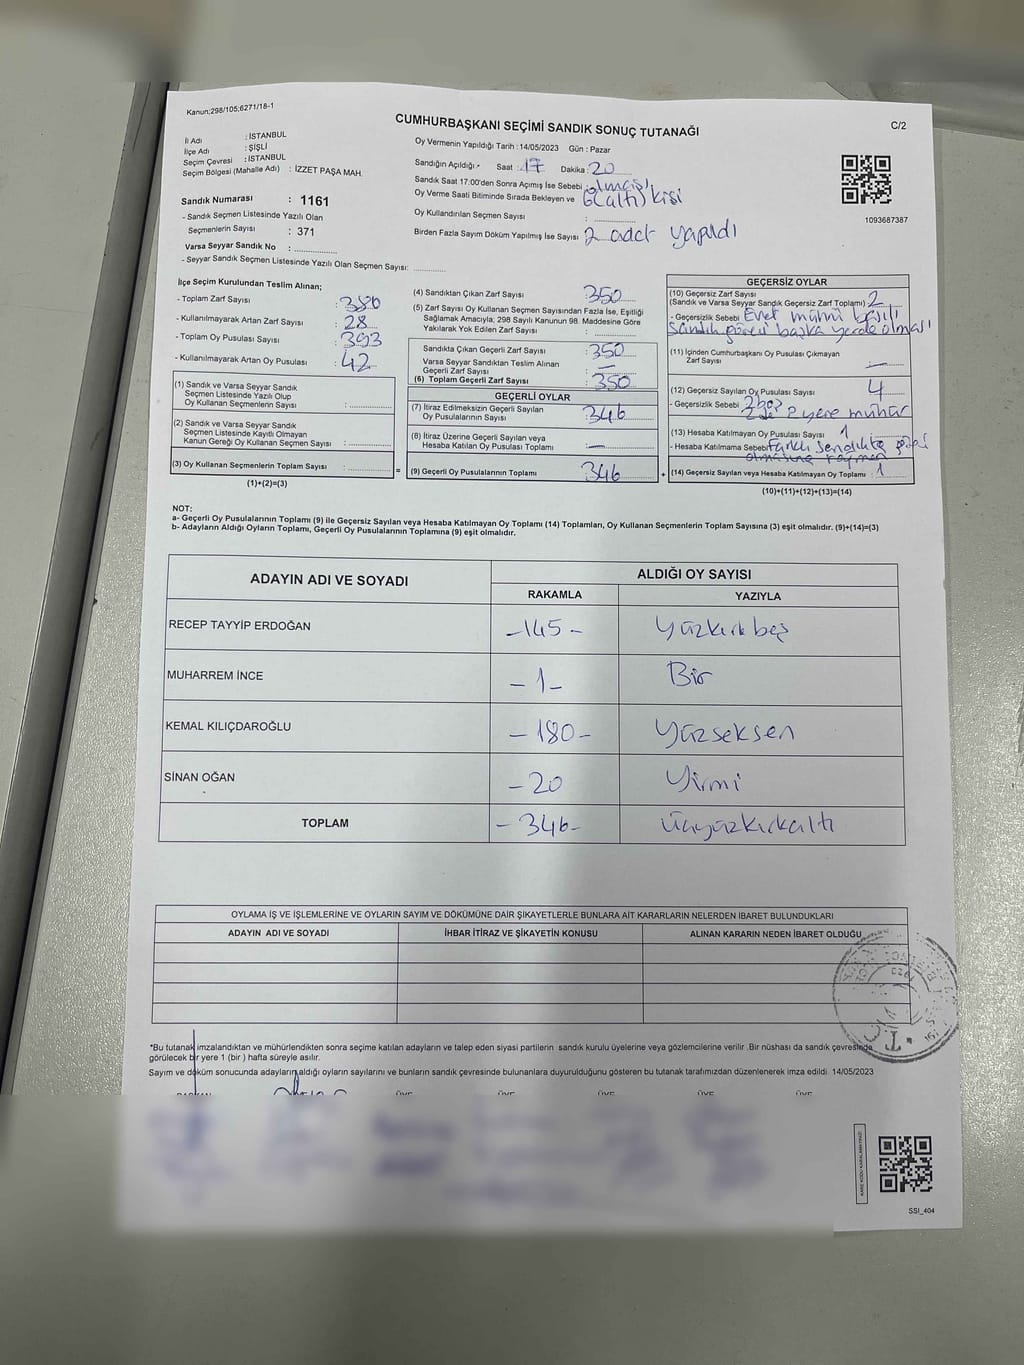 Kanun;298/105;6271/18-1
CUMHURBAŞKANI SEÇİMİ SANDIK SONUÇ TUTANAĞI
C/2
İl Adı : İSTANBUL
İlçe Adı : ŞİŞLİ
Seçim Çevresi : İSTANBUL
Seçim Bölgesi (Mahalle Adı) : İZZET PAŞA MAH.
Sandık Numarası : 1161
- Sandık Seçmen Listesinde Yazılı Olan
Seçmenlerin Sayısı : 371
Varsa Seyyar Sandık No :
- Seyyar Sandık Seçmen Listesinde Yazılı Olan Seçmen Sayısı:
Oy Vermenin Yapıldığı Tarih : 14/05/2023 Gün : Pazar
Sandığın Açıldığı - Saat : 17 Dakika : 20
Sandık Saat 17:00'den Sonra Açımış İse Sebebi :
Oy Verme Saati Bitiminde Sırada Bekleyen ve 6 (altı) kişi
Oy Kullandırılan Seçmen Sayısı :
Birden Fazla Sayım Döküm Yapılmış İse Sayısı : 2 adet yapıldı
1093687387
İlçe Seçim Kurulundan Teslim Alınan;
- Toplam Zarf Sayısı :
- Kullanılmayarak Artan Zarf Sayısı : 28
- Toplam Oy Pusulası Sayısı : 393
- Kullanılmayarak Artan Oy Pusulası : 42
(1) Sandık ve Varsa Seyyar Sandık
Seçmen Listesinde Yazılı Olup
Oy Kullanan Seçmenlerin Sayısı :
(2) Sandık ve Varsa Seyyar Sandık
Seçmen Listesinde Kayıtlı Olmayan
Kanun Gereği Oy Kullanan Seçmen Sayısı :
(3) Oy Kullanan Seçmenlerin Toplam Sayısı : =
(1)+(2)=(3)
(4) Sandıktan Çıkan Zarf Sayısı : 350
(5) Zarf Sayısı Oy Kullanan Seçmen Sayısından Fazla İse, Eşitliği
Sağlamak Amacıyla; 298 Sayılı Kanunun 98. Maddesine Göre
Yakılarak Yok Edilen Zarf Sayısı :
Sandıkta Çıkan Geçerli Zarf Sayısı : 350
Varsa Seyyar Sandıktan Teslim Alınan
Geçerli Zarf Sayısı : —
(6) Toplam Geçerli Zarf Sayısı : 350
GEÇERLİ OYLAR
(7) İtiraz Edilmeksizin Geçerli Sayılan
Oy Pusulalarının Sayısı : 346
(8) İtiraz Üzerine Geçerli Sayılan veya
Hesaba Katılan Oy Pusulası Toplamı : —
(9) Geçerli Oy Pusulalarının Toplamı : 346 +
GEÇERSİZ OYLAR
(10) Geçersiz Zarf Sayısı
(Sandık ve Varsa Seyyar Sandık Geçersiz Zarf Toplamı) : 2
- Geçersizlik Sebebi : Evet mührü
Sandık görevi başka yerde olması
(11) İçinden Cumhurbaşkanı Oy Pusulası Çıkmayan
Zarf Sayısı : —
(12) Geçersiz Sayılan Oy Pusulası Sayısı : 4
- Geçersizlik Sebebi : 2 boş
2 de 2 yere mühür
(13) Hesaba Katılmayan Oy Pusulası Sayısı : 1
- Hesaba Katılmama Sebebi : Farklı sandıkta
olmasına rağmen
(14) Geçersiz Sayılan veya Hesaba Katılmayan Oy Toplamı : 1
(10)+(11)+(12)+(13)=(14)
NOT:
a- Geçerli Oy Pusulalarının Toplamı (9) ile Geçersiz Sayılan veya Hesaba Katılmayan Oy Toplamı (14) Toplamları, Oy Kullanan Seçmenlerin Toplam Sayısına (3) eşit olmalıdır. (9)+(14)=(3)
b- Adayların Aldığı Oyların Toplamı, Geçerli Oy Pusulalarının Toplamına (9) eşit olmalıdır.
ADAYIN ADI VE SOYADI
ALDIĞI OY SAYISI
RAKAMLA YAZIYLA
RECEP TAYYİP ERDOĞAN -145- Yüzkırkbeş
MUHARREM İNCE -1- Bir
KEMAL KILIÇDAROĞLU -180- Yüzseksen
SİNAN OĞAN -20 Yirmi
TOPLAM -346- Üçyüzkırkaltı
OYLAMA İŞ VE İŞLEMLERİNE VE OYLARIN SAYIM VE DÖKÜMÜNE DAİR ŞİKAYETLERLE BUNLARA AİT KARARLARIN NELERDEN İBARET BULUNDUKLARI
ADAYIN ADI VE SOYADI İHBAR İTİRAZ VE ŞİKAYETİN KONUSU ALINAN KARARIN NEDEN İBARET OLDUĞU
*Bu tutanak imzalandıktan ve mühürlendikten sonra seçime katılan adayların ve talep eden siyasi partilerin sandık kurulu üyelerine veya gözlemcilerine verilir .Bir nüshası da sandık çevresinde
görülecek bir yere 1 (bir ) hafta süreyle asılır.
Sayım ve döküm sonucunda adayların aldığı oyların sayılarını ve bunların sandık çevresinde bulunanlara duyurulduğunu gösteren bu tutanak tarafımızdan düzenlenerek imza edildi. 14/05/2023
BAŞKAN ÜYE ÜYE ÜYE ÜYE ÜYE
SSİ_404